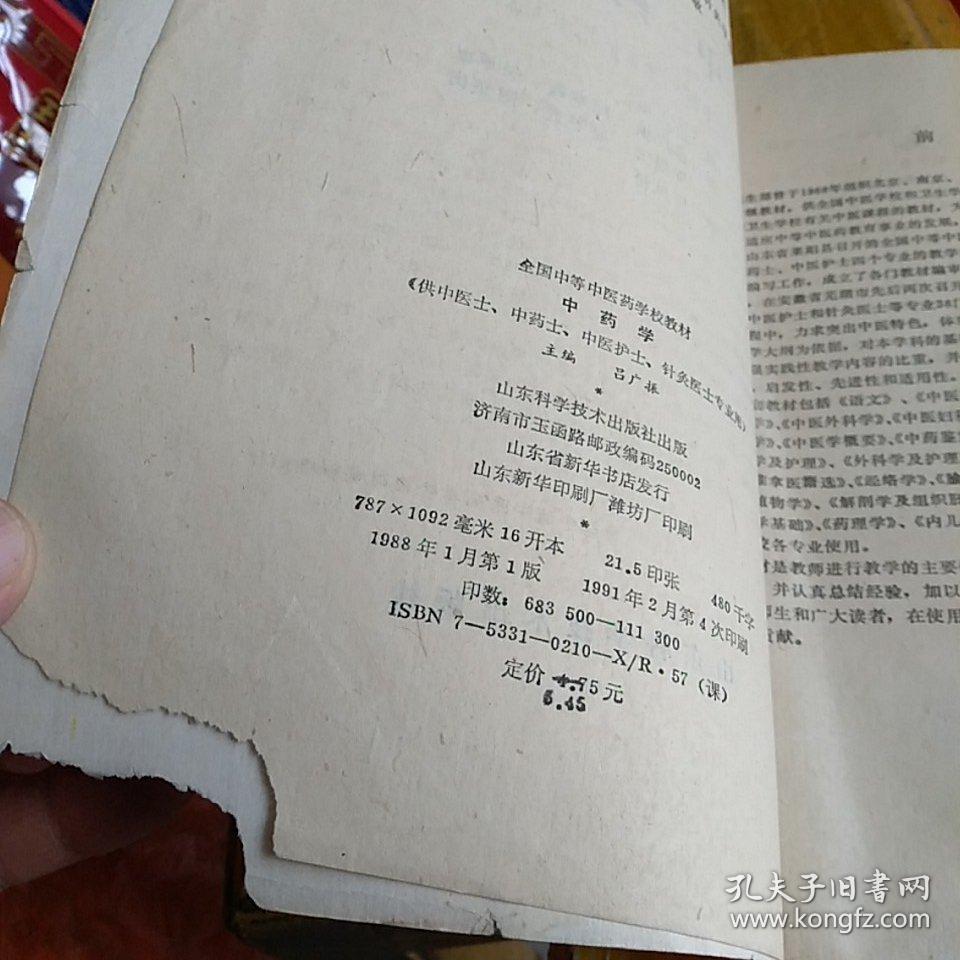 全国中等中医药学校教材
中药学
(供中医士、中药士、中医护士、针灸医士专业用)
主编 吕广振
*
山东科学技术出版社出版
济南市玉函路邮政编码250002
山东省新华书店发行
山东新华印刷厂潍坊厂印刷
*
787×1092毫米16开本 21.5印张 480千字
1988年1月第1版 1991年2月第4次印刷
印数:683 500—111 300
ISBN 7—5331—0210—X/R·57(课)
定价 4.75元
5.45
前
生部曾于1960年组织北京、南京、
级教材,供全国中医学校和卫生学
卫生学校有关中医课程的教材,
适应中等中医药教育事业的发展,
山东省莱阳县召开的全国中等中
药士、中医护士四个专业的教学
编写工作,成立了各门教材编审
,在安徽省芜湖市先后两次召开
中医护士和针灸医士等专业38门
程中,力求突出中医特色,体
学大纲为依据,对本学科的基
强实践性教学内容的比重,并
、启发性、先进性和适用性。
教材包括《语文》、《中医
学》、《中医外科学》、《中医妇
》、《中医学概要》、《中药鉴
学及护理》、《外科学及护理
推拿医籍选》、《经络学》、《腧
植物学》、《解剖学及组织胚
学基础》、《药理学》、《内儿
校各专业使用。
材是教师进行教学的主要
并认真总结经验,加以
师生和广大读者,在使用
贡献。
孔夫子旧书网
www.kongfz.com